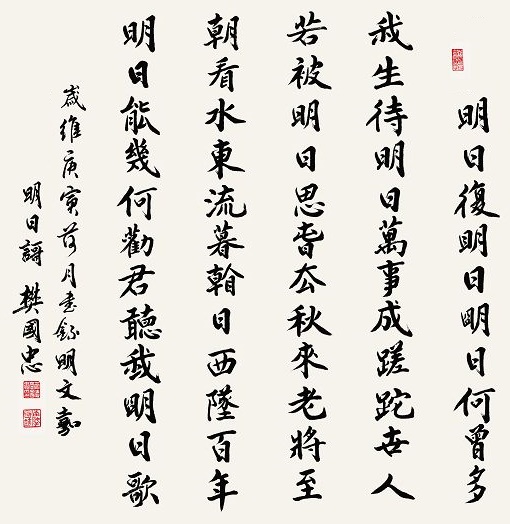 明日復明日明日何曾多
我生待明日萬事成蹉跎世人
若被明日思旾厺秋來老將至
朝看水東流暮日西墜百年
明日能幾何勸君聽我明日歌
歲維庚寅荷月書錄明文嘉
明日謌 樊國忠